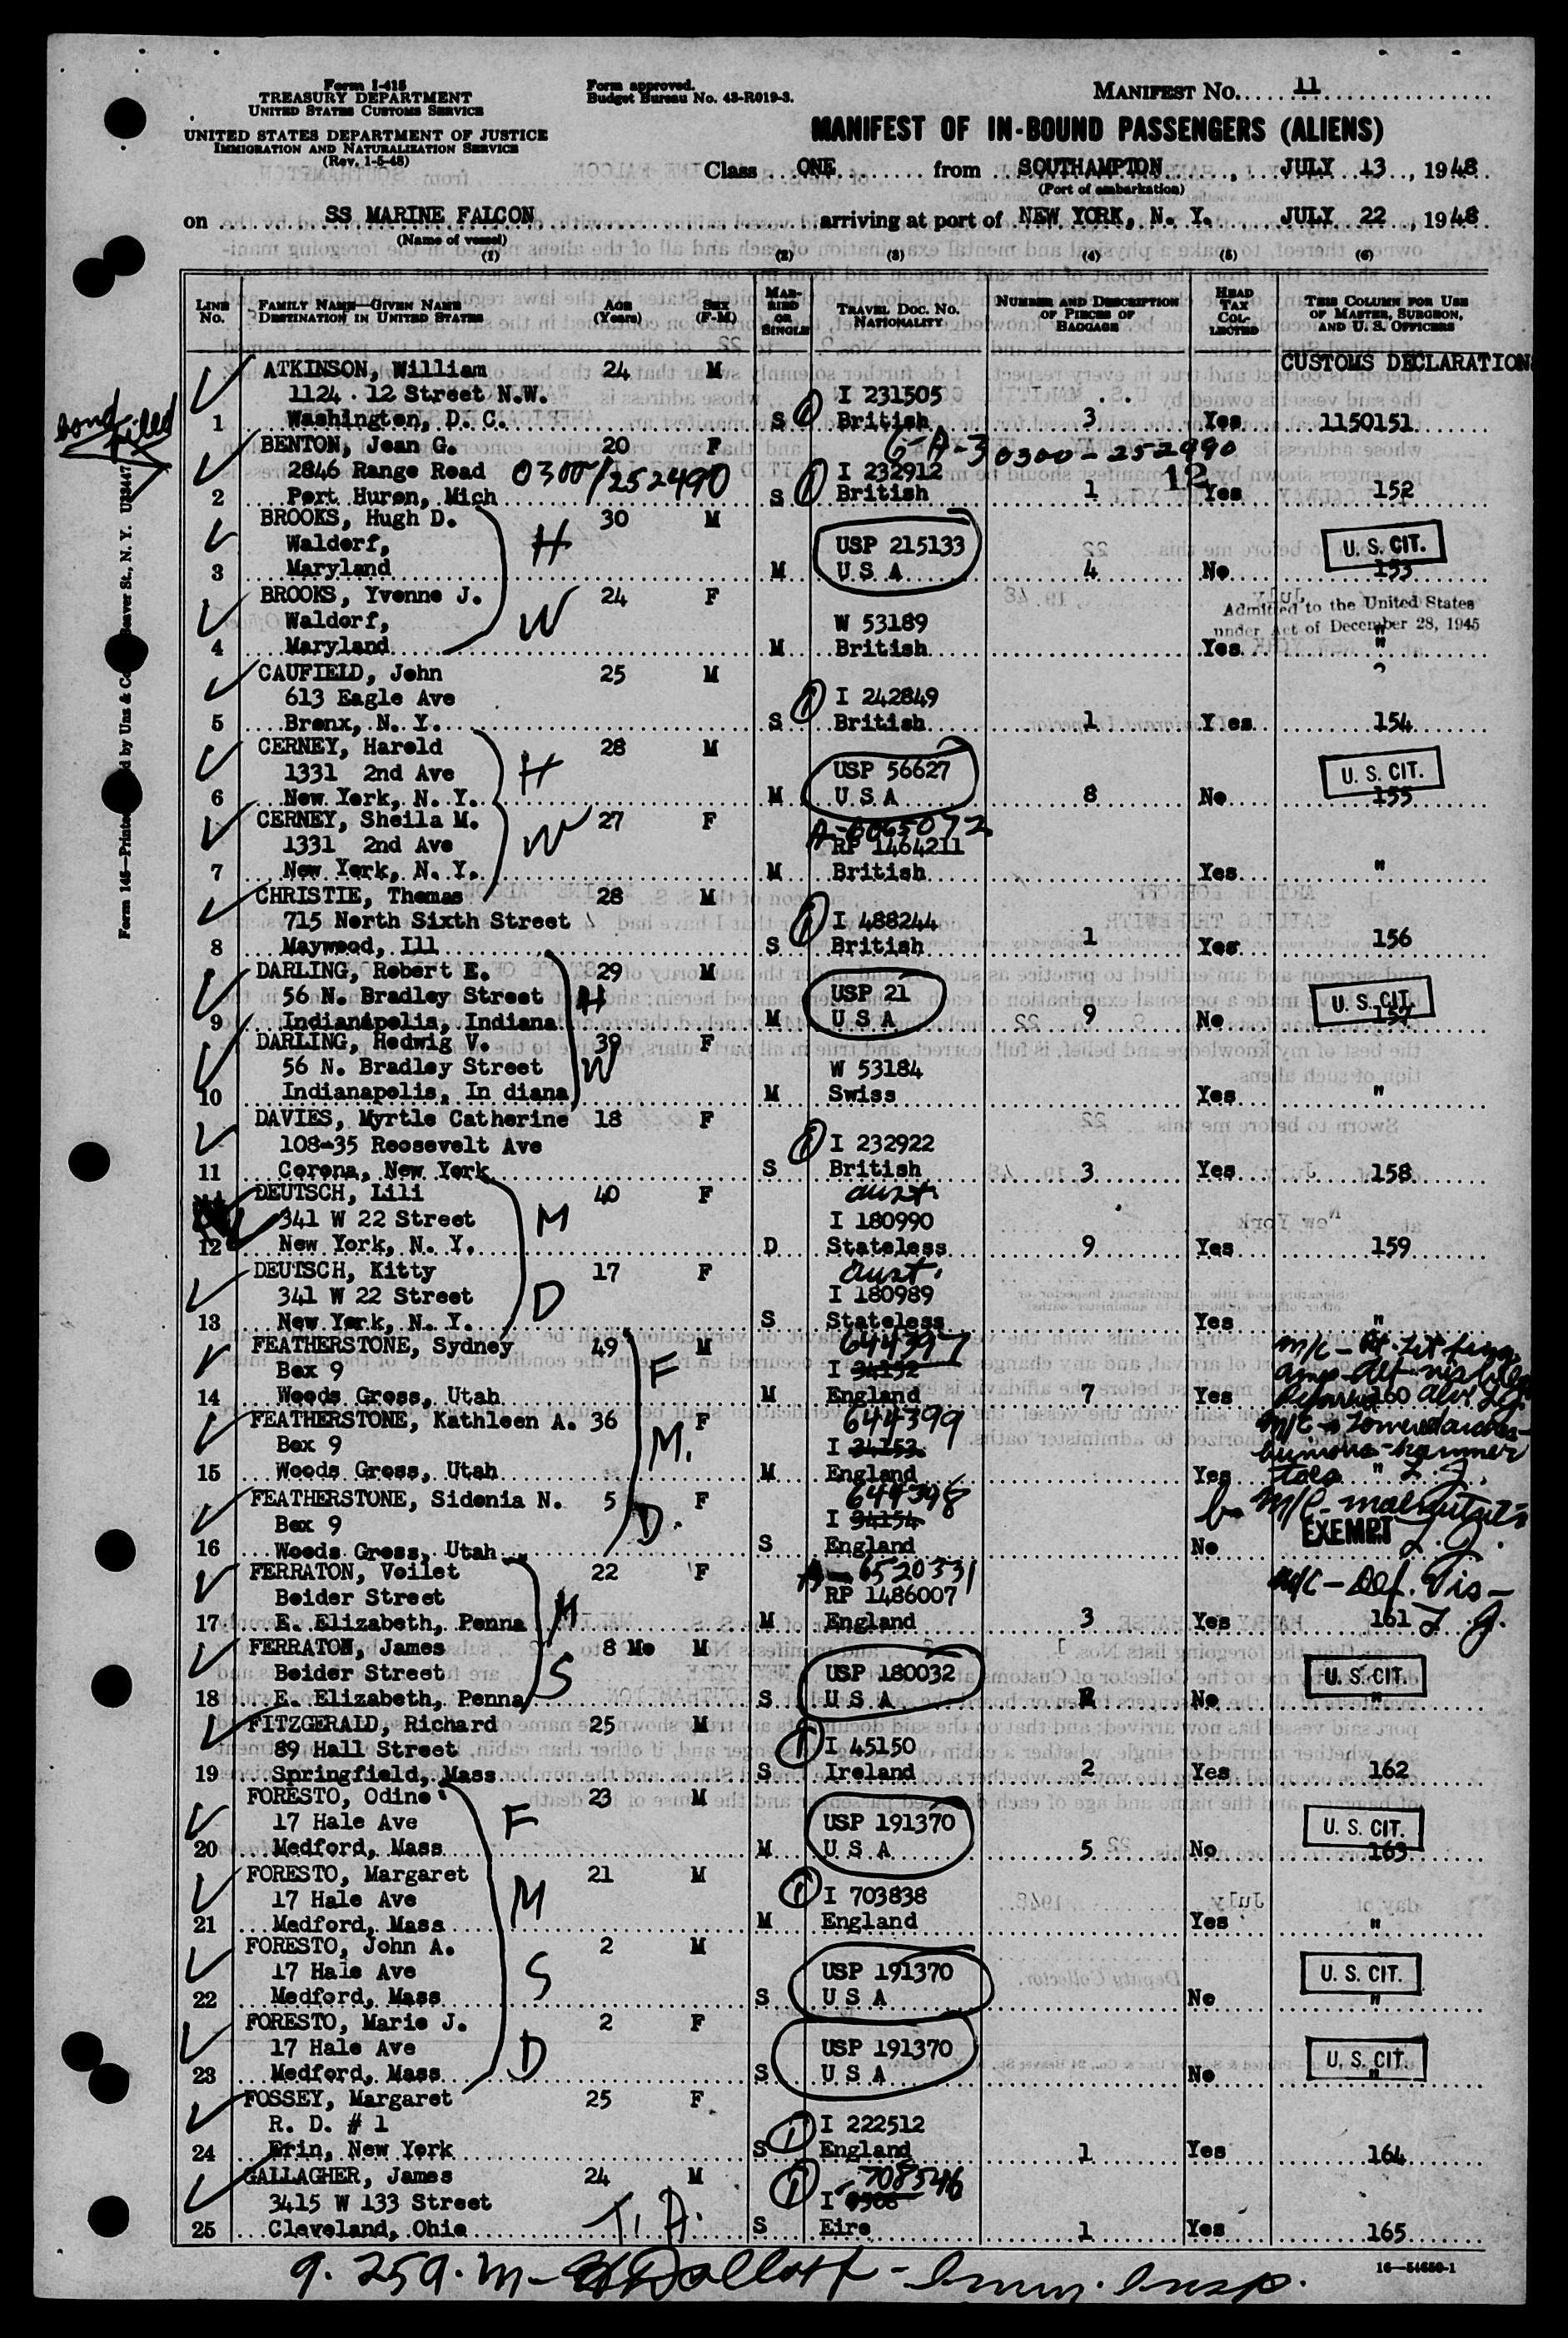 Form I-415
TREASURY DEPARTMENT
UNITED STATES CUSTOMS SERVICE
UNITED STATES DEPARTMENT OF JUSTICE
IMMIGRATION AND NATURALIZATION SERVICE
(Rev. 1-5-48)
Form approved.
Budget Bureau No. 43-R019-3.
MANIFEST NO. 11
MANIFEST OF IN-BOUND PASSENGERS (ALIENS)
Class ONE from SOUTHAMPTON, JULY 13, 1948
(Port of embarkation)
on SS MARINE FALCON arriving at port of NEW YORK, N. Y. JULY 22, 1948
(Name of vessel)
(1) (2) (3) (4) (5) (6)
LINE No. FAMILY NAME—GIVEN NAME DESTINATION IN UNITED STATES AGE (Years) SEX (F-M) MARRIED OR SINGLE TRAVEL DOC. NO. NATIONALITY NUMBER AND DESCRIPTION OF PIECES OF BAGGAGE HEAD TAX COLLECTED THIS COLUMN FOR USE OF MASTER, SURGEON, AND U. S. OFFICERS
CUSTOMS DECLARATION
ATKINSON, William 24 M
1124 . 12 Street N.W. I 231505
1 Washington, D. C. S British 3 Yes 1150151
bond filled
BENTON, Jean G. 20 F 6-A-3 0300-252990
2846 Range Road 0300/252490 I 232912 12
2 Port Huron, Mich S British 1 Yes 152
BROOKS, Hugh D. 30 M
Waldorf, H USP 215133 U. S. CIT.
3 Maryland M U S A 4 No 153
BROOKS, Yvonne J. 24 F Admitted to the United States
Waldorf, W W 53189 under Act of December 28, 1945
4 Maryland M British Yes "
CAUFIELD, John 25 M
613 Eagle Ave I 242849
5 Bronx, N. Y. S British 1 Y es 154
CERNEY, Harold 28 M
1331 2nd Ave H USP 56627 U. S. CIT.
6 New York, N. Y. M U S A 8 No 155
CERNEY, Sheila M. 27 F A-6065072
1331 2nd Ave W RP 1464211
7 New York, N. Y. M British Yes "
CHRISTIE, Thomas 28 M
715 North Sixth Street I 488244
8 Maywood, Ill S British 1 Yes 156
DARLING, Robert E. 29 M
56 N. Bradley Street H USP 21 U. S. CIT.
9 Indianapolis, Indiana M U S A 9 No 157
DARLING, Hedwig V. 39 F
56 N. Bradley Street W W 53184
10 Indianapolis, In diana M Swiss Yes "
DAVIES, Myrtle Catherine 18 F
108-35 Roosevelt Ave I 232922
11 Corona, New York S British 3 Yes 158
DEUTSCH, Lili 40 F aust.
341 W 22 Street M I 180990
12 New York, N. Y. D Stateless 9 Yes 159
DEUTSCH, Kitty 17 F aust.
341 W 22 Street D I 180989
13 New York, N. Y. S Stateless Yes "
FEATHERSTONE, Sydney 49 M 644397
Box 9 F I 34152
14 Woods Gross, Utah M England 7 Yes 160
FEATHERSTONE, Kathleen A. 36 F 644399
Box 9 M. I 34153
15 Woods Gross, Utah M England Yes toes " L.J.
FEATHERSTONE, Sidonia N. 5 F 644398
Box 9 D. I 34154 EXEMPT
16 Woods Gross, Utah S England No L.J.
FERRATON, Voilet 22 F A-6520331 M/C - Def. Vis -
Beider Street RP 1486007
17 E. Elizabeth, Penna M M England 3 Yes 161 L.J.
FERRATON, James 8 Mo M
Beider Street S USP 180032 U. S. CIT.
18 E. Elizabeth, Penna S U S A No "
FITZGERALD, Richard 25 M
89 Hall Street I 45150
19 Springfield, Mass S Ireland 2 Yes 162
FORESTO, Odino 23 M
17 Hale Ave F USP 191370 U. S. CIT.
20 Medford, Mass M U S A 5 No 163
FORESTO, Margaret 21 M
17 Hale Ave M I 703838
21 Medford, Mass M England Yes "
FORESTO, John A. 2 M
17 Hale Ave S USP 191370 U. S. CIT.
22 Medford, Mass S U S A No "
FORESTO, Marie J. 2 F
17 Hale Ave D USP 191370 U. S. CIT.
23 Medford, Mass S U S A No "
FOSSEY, Margaret 25 F
R. D. # 1 I 222512
24 Erin, New York S England 1 Yes 164
GALLAGHER, James 24 M 708546
3415 W 133 Street I
25 Cleveland, Ohio T. A. S Eire 1 Yes 165
9.25 a.m - Imm. Insp.
16—54650-1